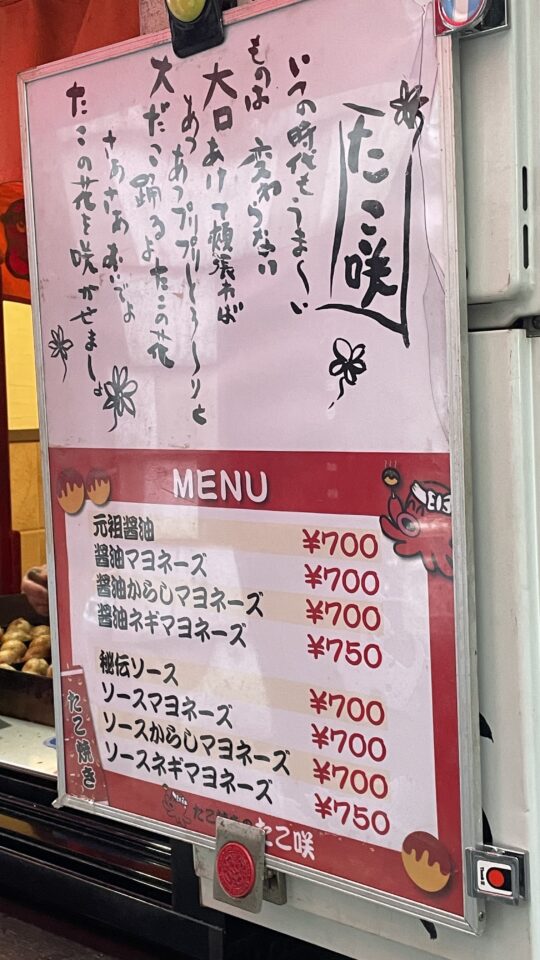 たこ咲
いつの時代もうま〜い
ものは 変わらない
大口あけて頬張れば
あつあつプリプリとろ〜りと
大だこ踊るよたこの花
さあさあおいでよ
たこの花を咲かせましょ
MENU
元祖醤油 ¥700
醤油マヨネーズ ¥700
醤油からしマヨネーズ ¥700
醤油ネギマヨネーズ ¥750
秘伝ソース ¥700
ソースマヨネーズ ¥700
ソースからしマヨネーズ ¥700
ソースネギマヨネーズ ¥750
たこ焼き
たこ咲